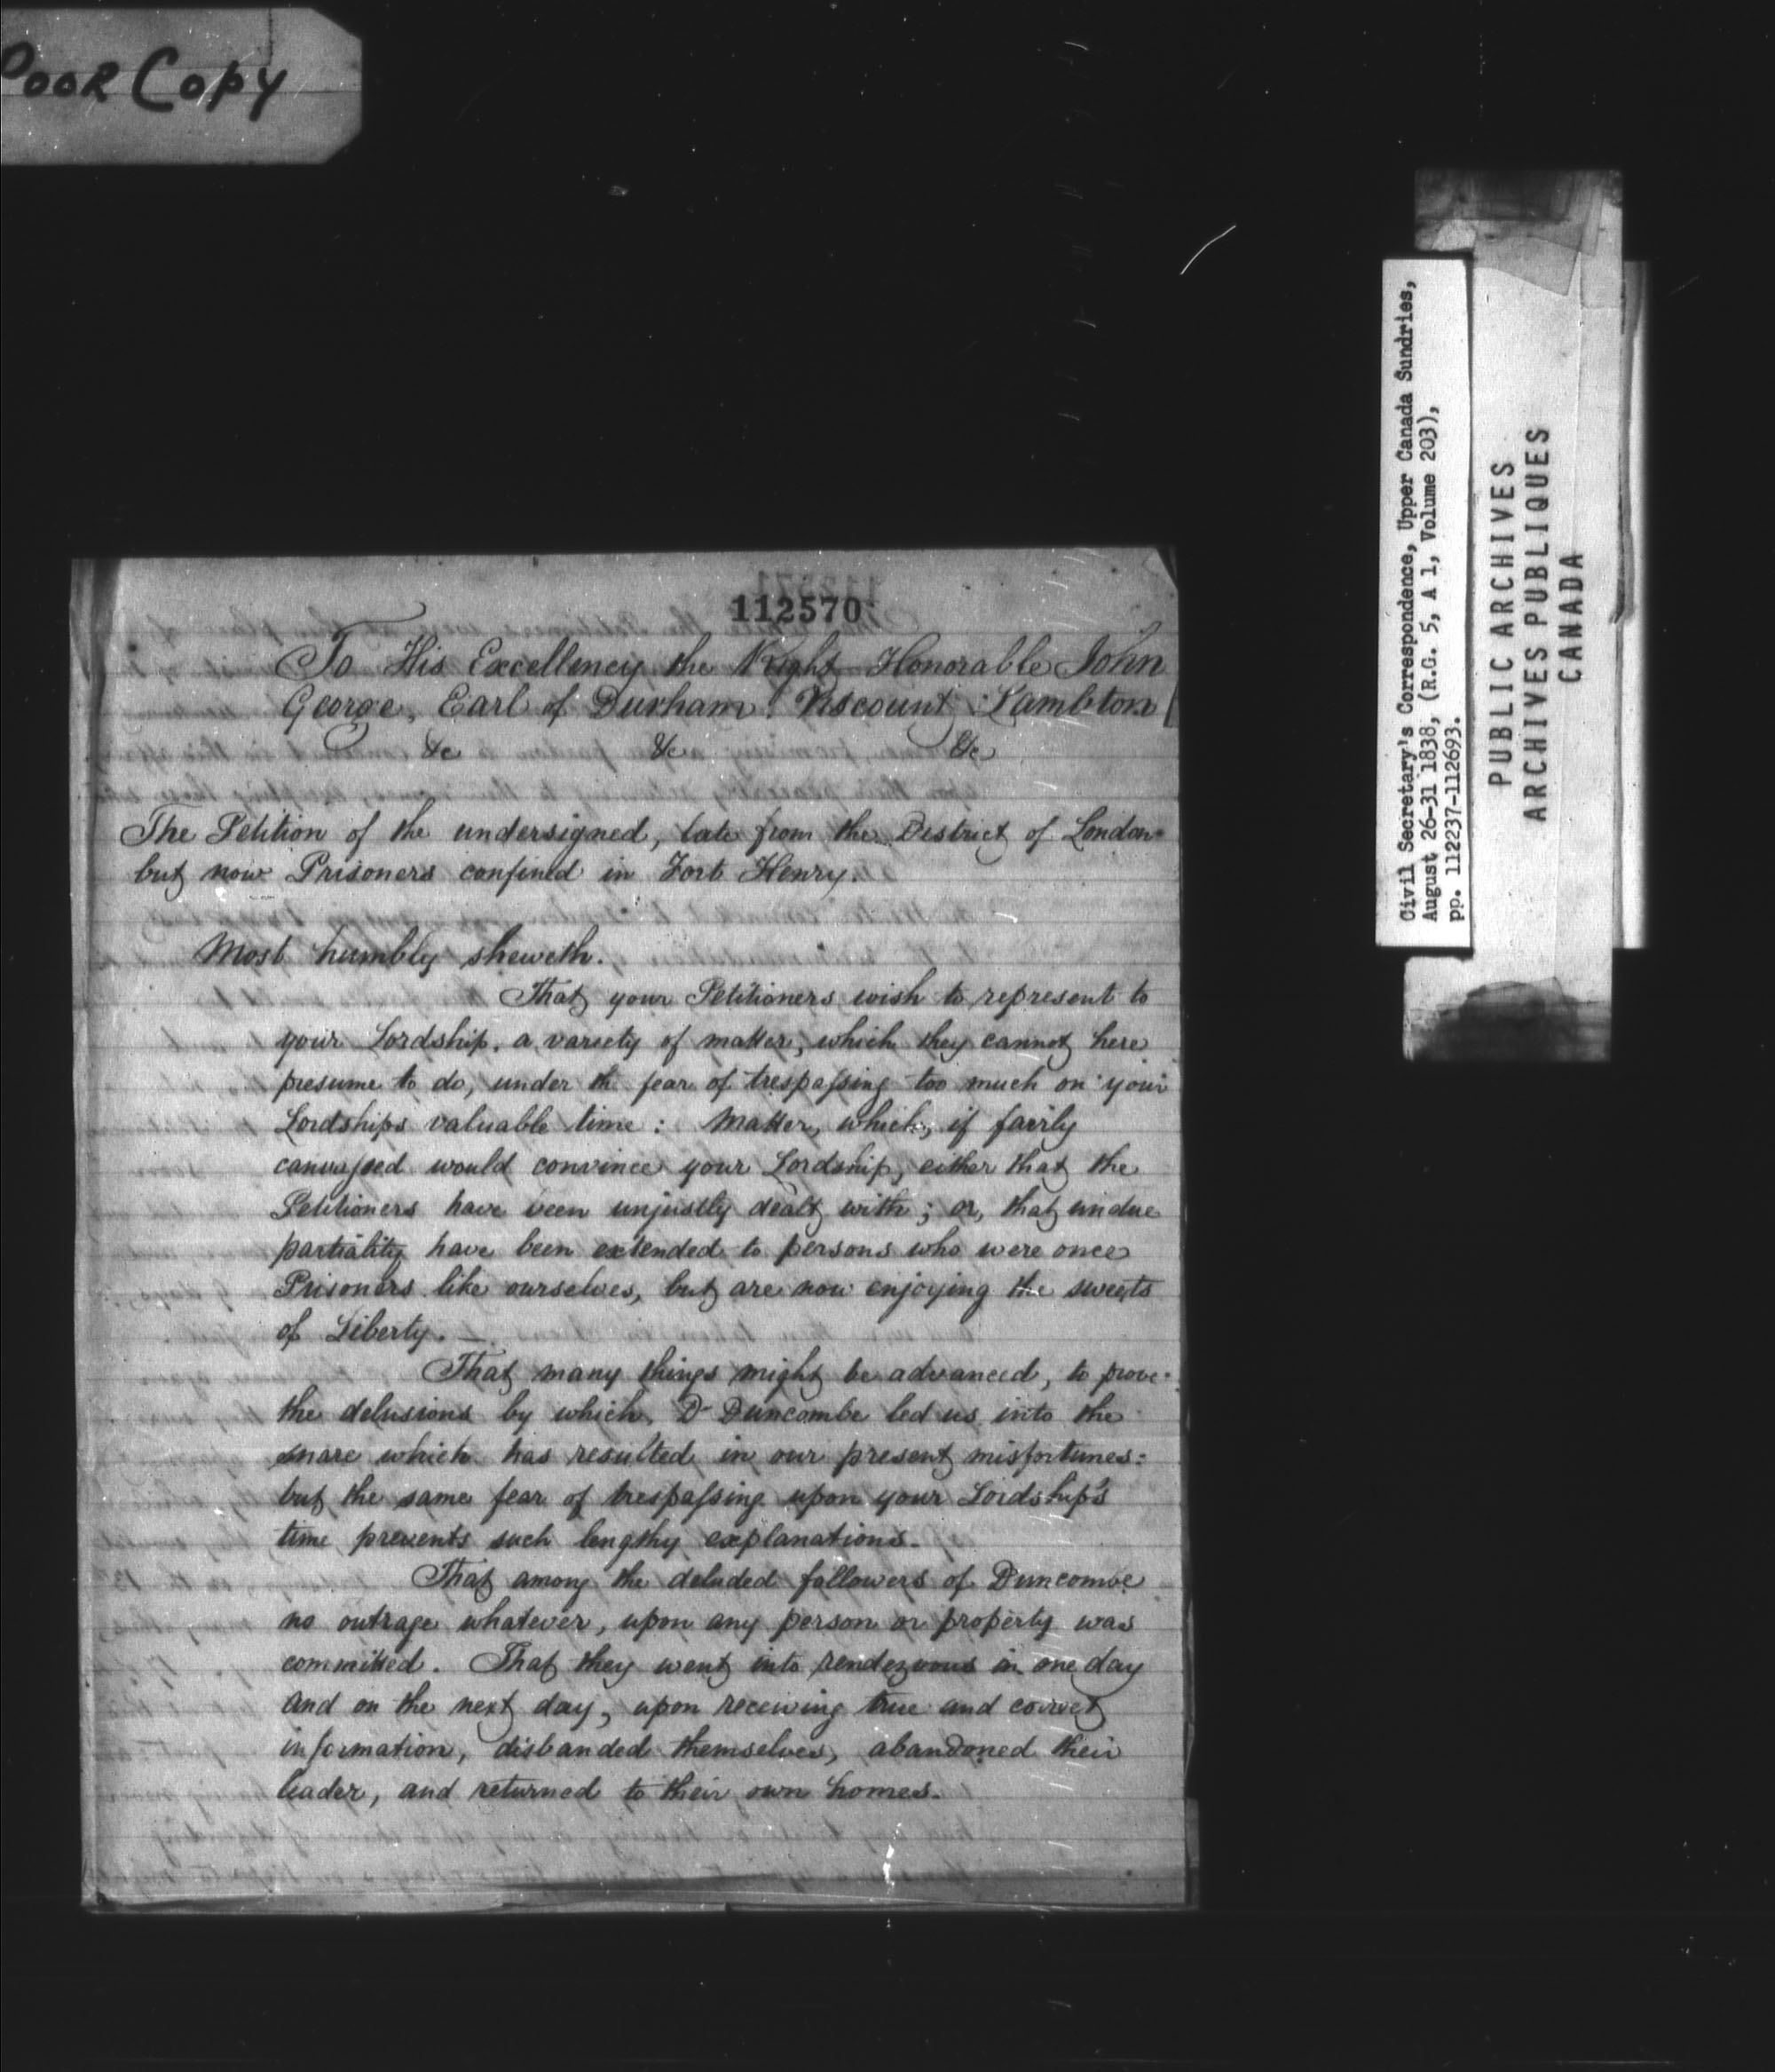 POOR COPY
112570
To His Excellency the Right Honorable John
George, Earl of Durham. Viscount Lambton
&c &c &c
The Petition of the undersigned, late from the District of London
but now Prisoners confined in Fort Henry.
Most humbly sheweth.
That your Petitioners wish to represent to
your Lordship, a variety of matter, which they cannot here
presume to do, under the fear of trespassing too much on your
Lordships valuable time: Matter, which, if fairly
canvassed would convince your Lordship, either that the
Petitioners have been unjustly dealt with; or, that undue
partiality have been extended to persons who were once
Prisoners like ourselves, but are now enjoying the sweets
of Liberty. —
That many things might be advanced, to prove
the delusions by which, Dr Duncombe led us into the
snare which has resulted in our present misfortunes:
but the same fear of trespassing upon your Lordship's
time prevents such lengthy explanations.
That among the deluded followers of Duncombe
no outrage whatever, upon any person or property was
committed. That they went into rendezvous in one day
and on the next day, upon receiving true and correct
information, disbanded themselves, abandoned their
leader, and returned to their own homes.
Civil Secretary's Correspondence, Upper Canada Sundries,
August 26-31 1838, (R.G. 5, A 1, Volume 203),
pp. 112237-112693.
PUBLIC ARCHIVES
ARCHIVES PUBLIQUES
CANADA